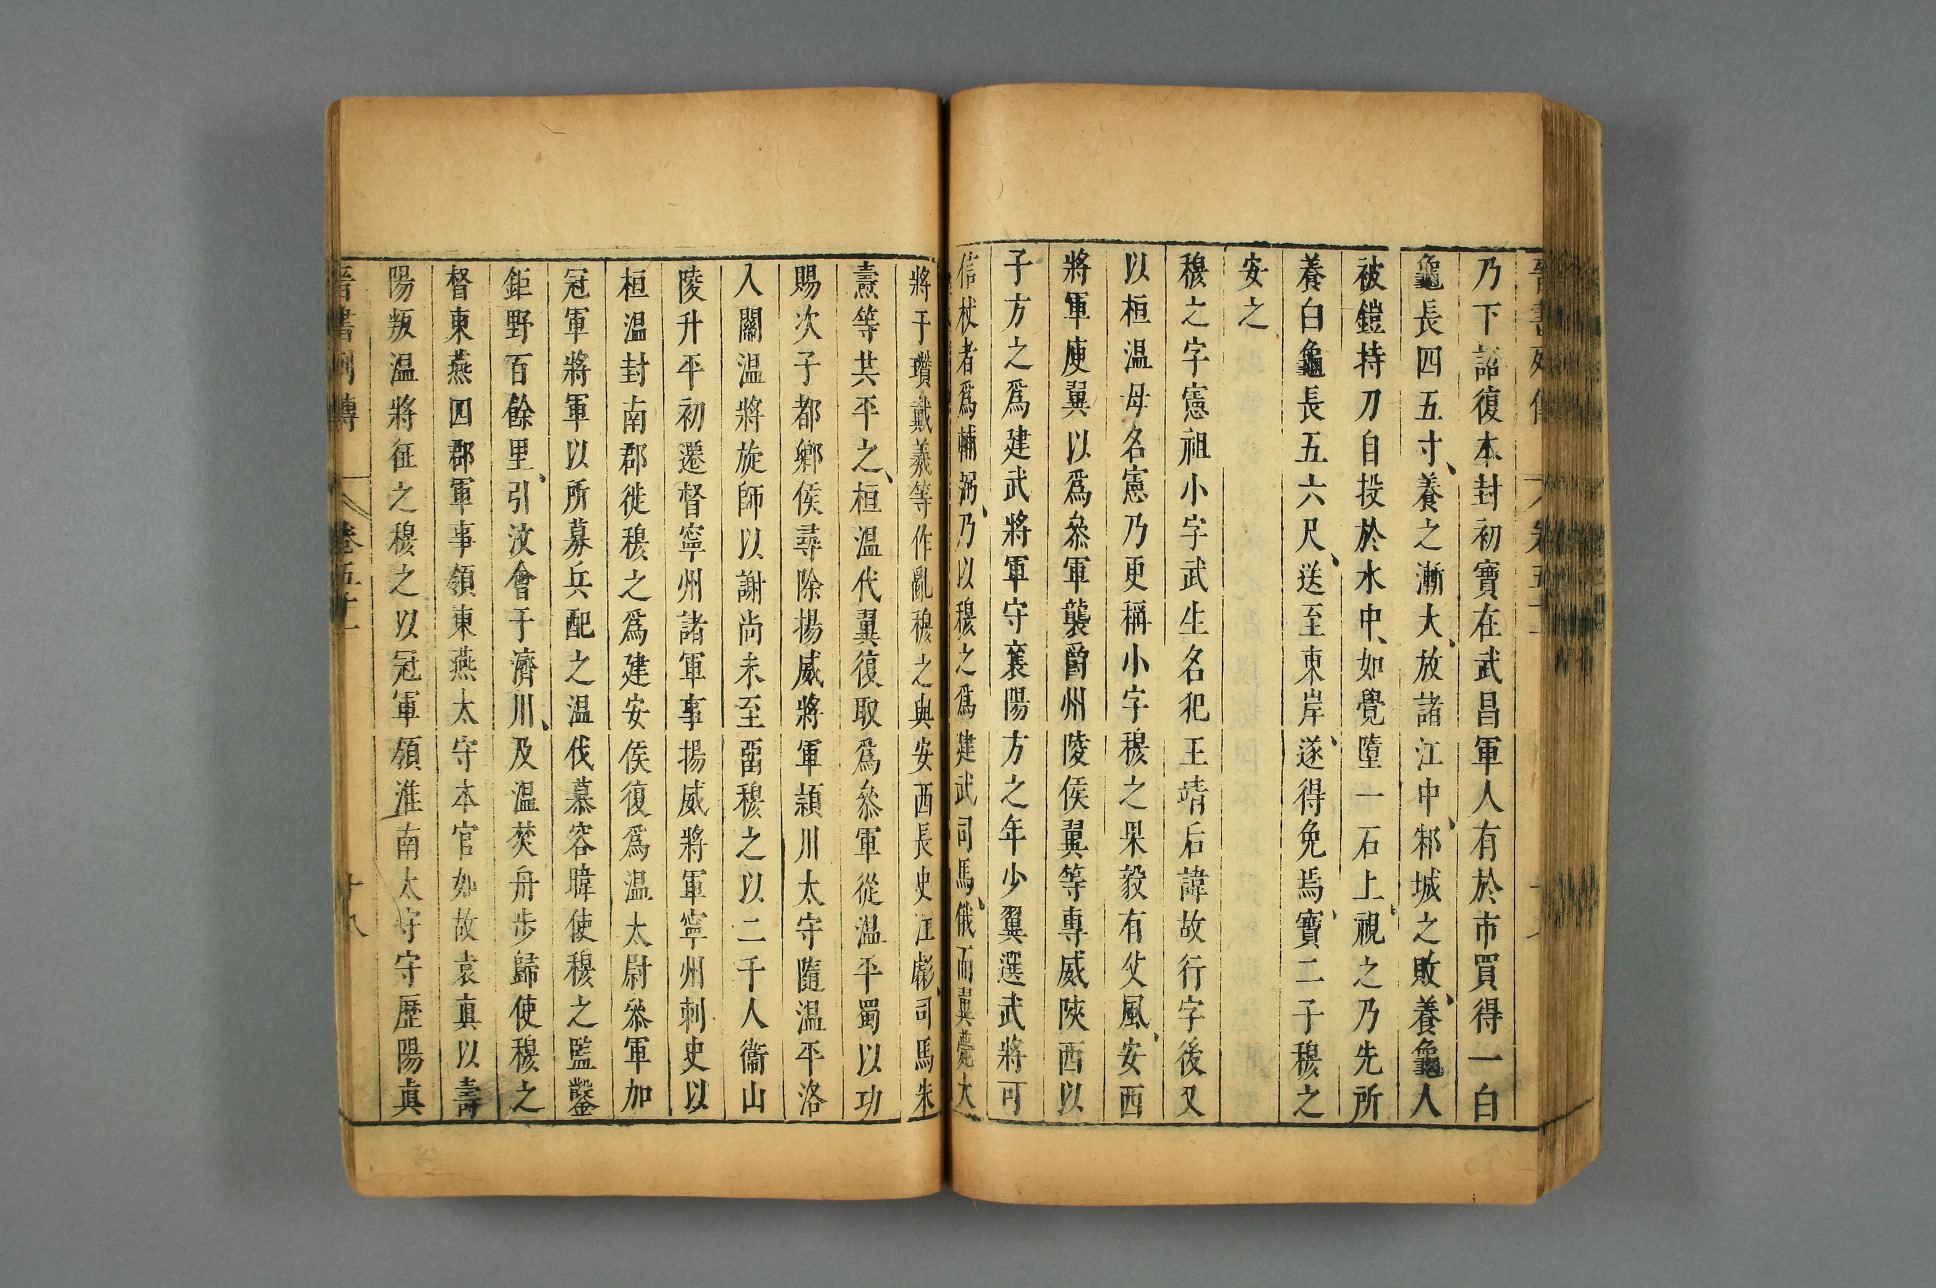 乃下詔復本封初寶在武昌軍人有於市買得一白
龜長四五寸、養之漸大、放諸江中、邾城之敗、養龜人
被鎧持刀自投於水中、如覺墮一石上、視之乃先所
養白龜長五六尺、送至東岸、遂得免焉、寶二子穆之
安之
穆之字憲祖小字武生名犯王靖后諱故行字後又
以桓溫母名憲乃更稱小字穆之果毅有父風、安西
將軍庾翼以爲叅軍襲爵州陵侯翼等專威陝西以
子方之爲建武將軍守襄陽方之年少翼選武將可
信杖者爲輔弼、乃以穆之爲建武司馬、俄而翼薨大
將于瓚戴羲等作亂穆之與安西長史江虨、司馬朱
燾等共平之、桓溫代翼復取爲叅軍從溫平蜀以功
賜次子都鄉侯尋除揚威將軍潁川太守隨溫平洛
入關溫將旋師以謝尚未至畱穆之以二千人衞山
陵升平初遷督寧州諸軍事揚威將軍寧州刺史以
桓溫封南郡徙穆之爲建安侯復爲溫太尉叅軍加
冠軍將軍以所募兵配之溫伐慕容暐使穆之監鑿
鉅野百餘里、引汶會于濟川、及溫焚舟步歸使穆之
督東燕四郡軍事領東燕太守本官如故袁眞以壽
陽叛溫將征之穆之以冠軍領淮南太守守歷陽眞
晋書列傳 卷五十一 十八